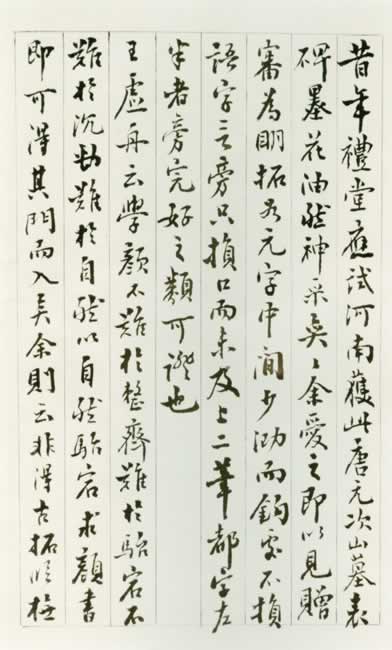 昔年禮堂應試河南獲此唐元次山墓表
碑墨花油然神采奕〻余愛之即以見贈
審為明拓元字中間少泐而鉤處不損
語字言旁只損口而未及上二筆都字左
半者旁完好之類可證也
王虛舟云學顏不難於整齊難於駘宕不
難於沉勁難於自然以自然駘宕求顏書
即可得其門而入矣余則云非得古拓橅